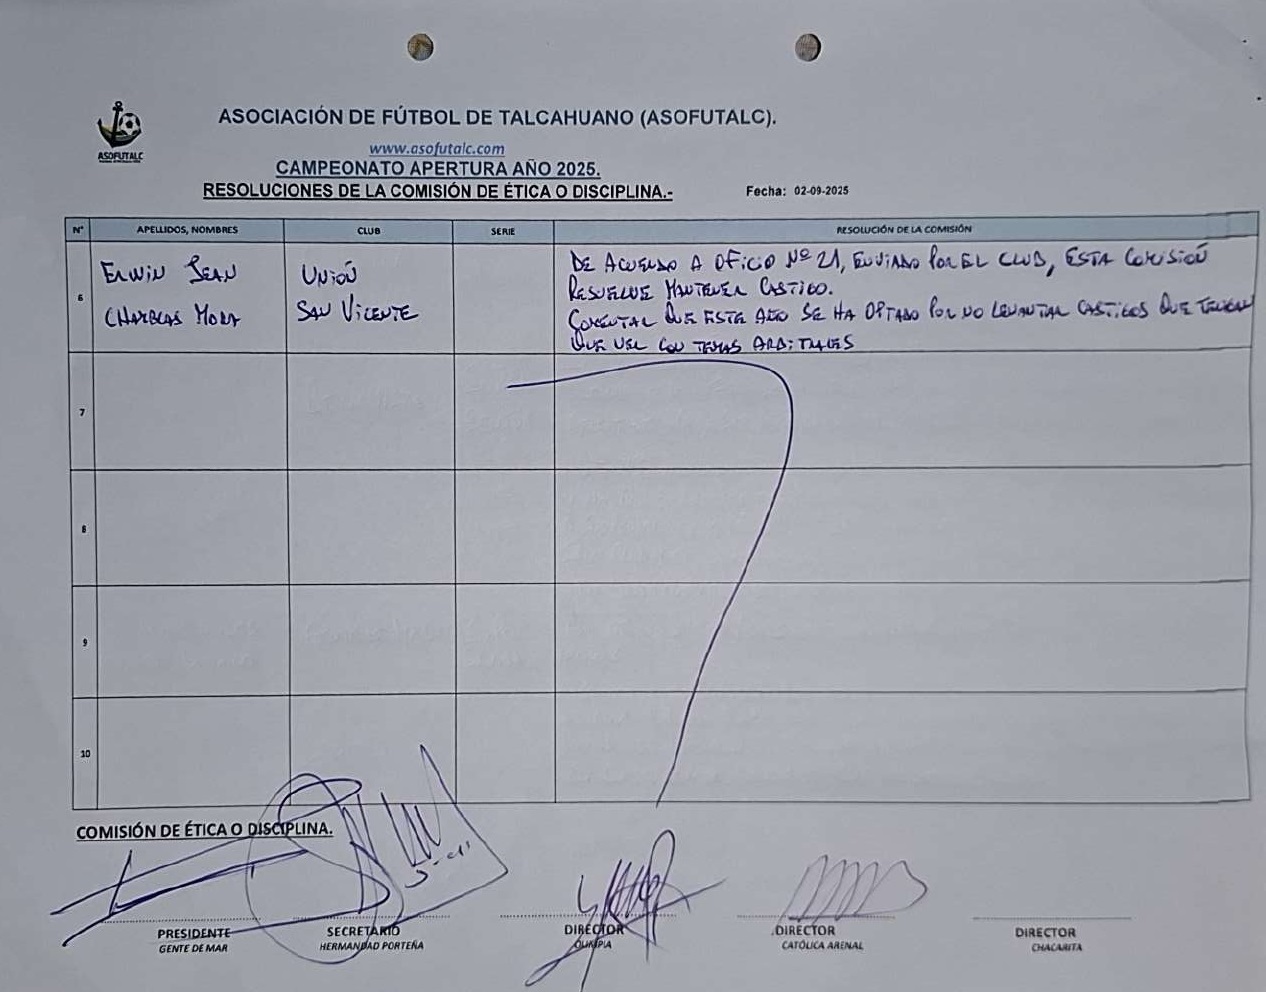 ASOFUTALC
ASOCIACIÓN DE FÚTBOL DE TALCAHUANO (ASOFUTALC).
www.asofutalc.com
CAMPEONATO APERTURA AÑO 2025.
RESOLUCIONES DE LA COMISIÓN DE ÉTICA O DISCIPLINA.- Fecha: 02-09-2025
N° APELLIDOS, NOMBRES CLUB SERIE RESOLUCIÓN DE LA COMISIÓN
6
ERWIN JEAN
MORA
UNIÓN
SAN VICENTE
DE ACUERDO A OFICIO Nº 21, ENVIADO POR EL CLUB, ESTA COMISIÓN
RESUELVE MANTENER CASTIGO.
COMENTAR QUE ESTE AÑO SE HA OPTADO POR NO LEVANTAR CASTIGOS QUE TENGAN
QUE VER CON TEMAS ARBITRALES
7
8
9
10
COMISIÓN DE ÉTICA O DISCIPLINA.
PRESIDENTE SECRETARIO DIRECTOR DIRECTOR DIRECTOR
GENTE DE MAR HERMANDAD PORTEÑA OLIMPIA CATÓLICA ARENAL CHACARITA